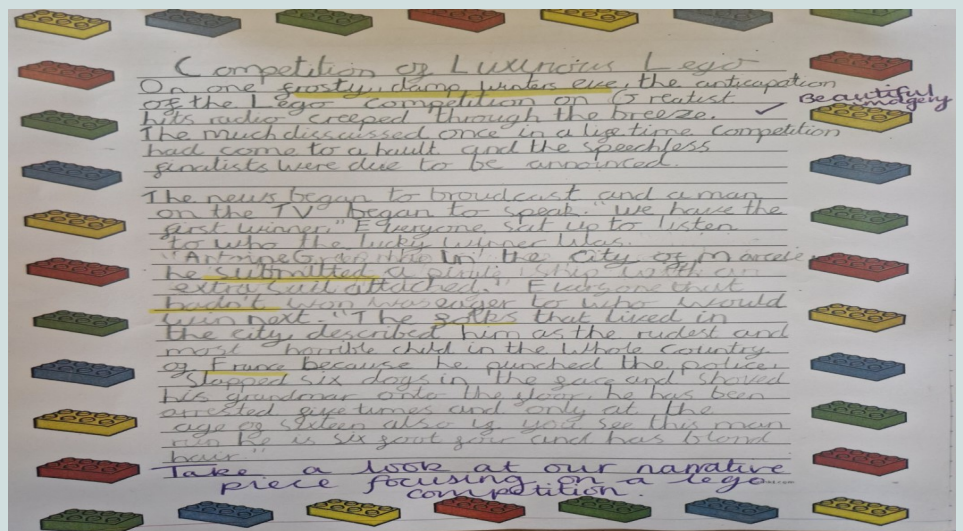 Competition of Luxurious Lego
On one frosty, damp winters eve, the anticapation
of the Lego Competition on Greatist
hits radio creeped through the breeze.
Beautiful imagery
The much discsussed once in a life time competition
had come to a hault and the speechless
finalists were due to be annoinced.
The news began to broudcast and a man
on the TV began to speak. "We have the
first winner." Everyone sat up to listen
to who the lucky winner was.
"Antoine In the City of Marceie
he submitted a pirate ship with an
extra sail attached." Everyone that
hadn't won was eager to who would
win next. "The folks that lived in
the city described him as the rudest and
most horrible child in the Whole Country
of France because he punched the police,
Slapped six dogs in the face and shoved
his grandmar onto the floor, he has been
arrested five times and only at the
age of sixteen also if you see this man
run he is six foot four and has blond
hair."
Take a look at our narrative
piece focusing on a lego
competition.